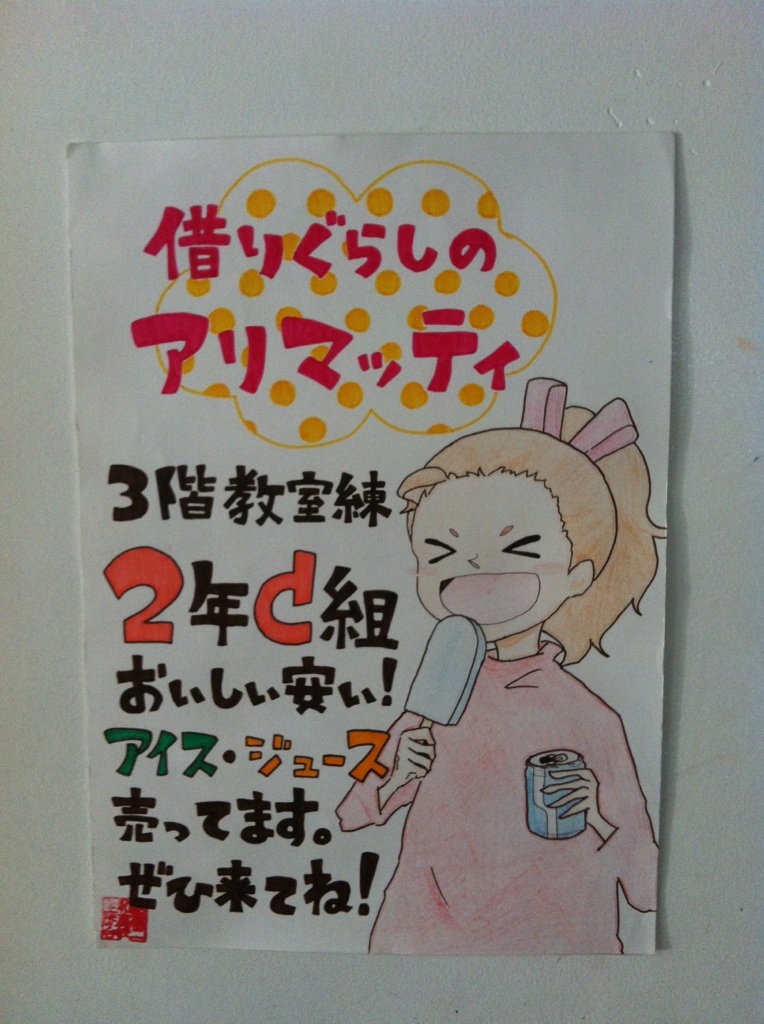 借りぐらしの
アリマッティ
3階教室練
2年C組
おいしい安い!
アイス・ジュース
売ってます。
ぜひ来てね!